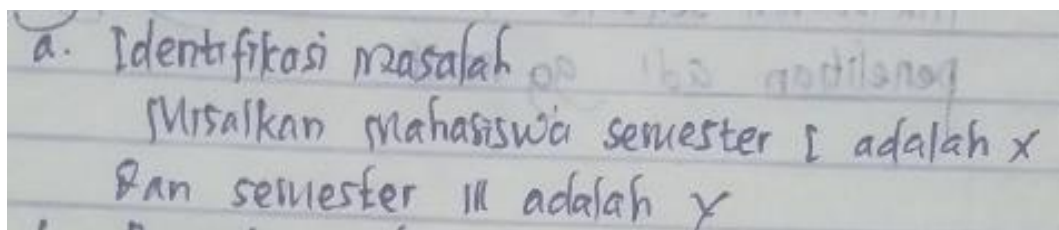 a. Identifikasi masalah
Misalkan mahasiswa semester I adalah x
Dan semester III adalah y